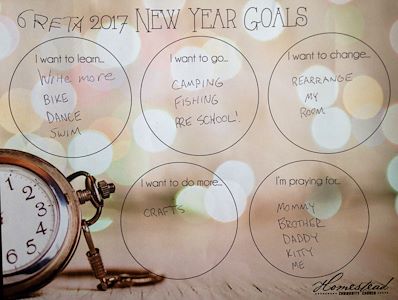 GRETA 2017 NEW YEAR GOALS
I want to learn...
Write more
BIKE
DANCE
SWIM
I want to go...
CAMPING
FISHING
PRE SCHOOL!
I want to change...
REARRANGE
MY
ROOM
I want to do more...
CRAFTS
I'm praying for...
MOMMY
BROTHER
DADDY
KITTY
ME
12
1
2
3
4
5
Homestead
COMMUNITY CHURCH